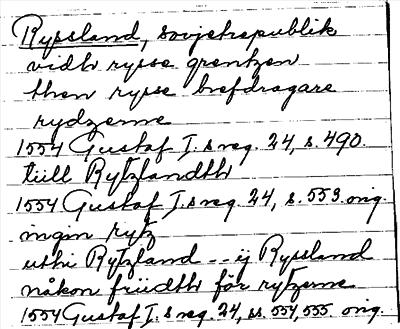 Ryssland, sovjetrepublik
vidh rysse grentzen
then rysse brefdragare
rydzerne
1554 Gustaf I:s reg. 24, s. 490.
till Rytzlandth
1554 Gustaf I:s reg. 24, s. 553. orig.
ingin rytz
uthi Rytzland -- ij Ryssland
nåkon friidth för rytzerne
1554 Gustaf I:s reg. 24, ss. 554, 555. orig.